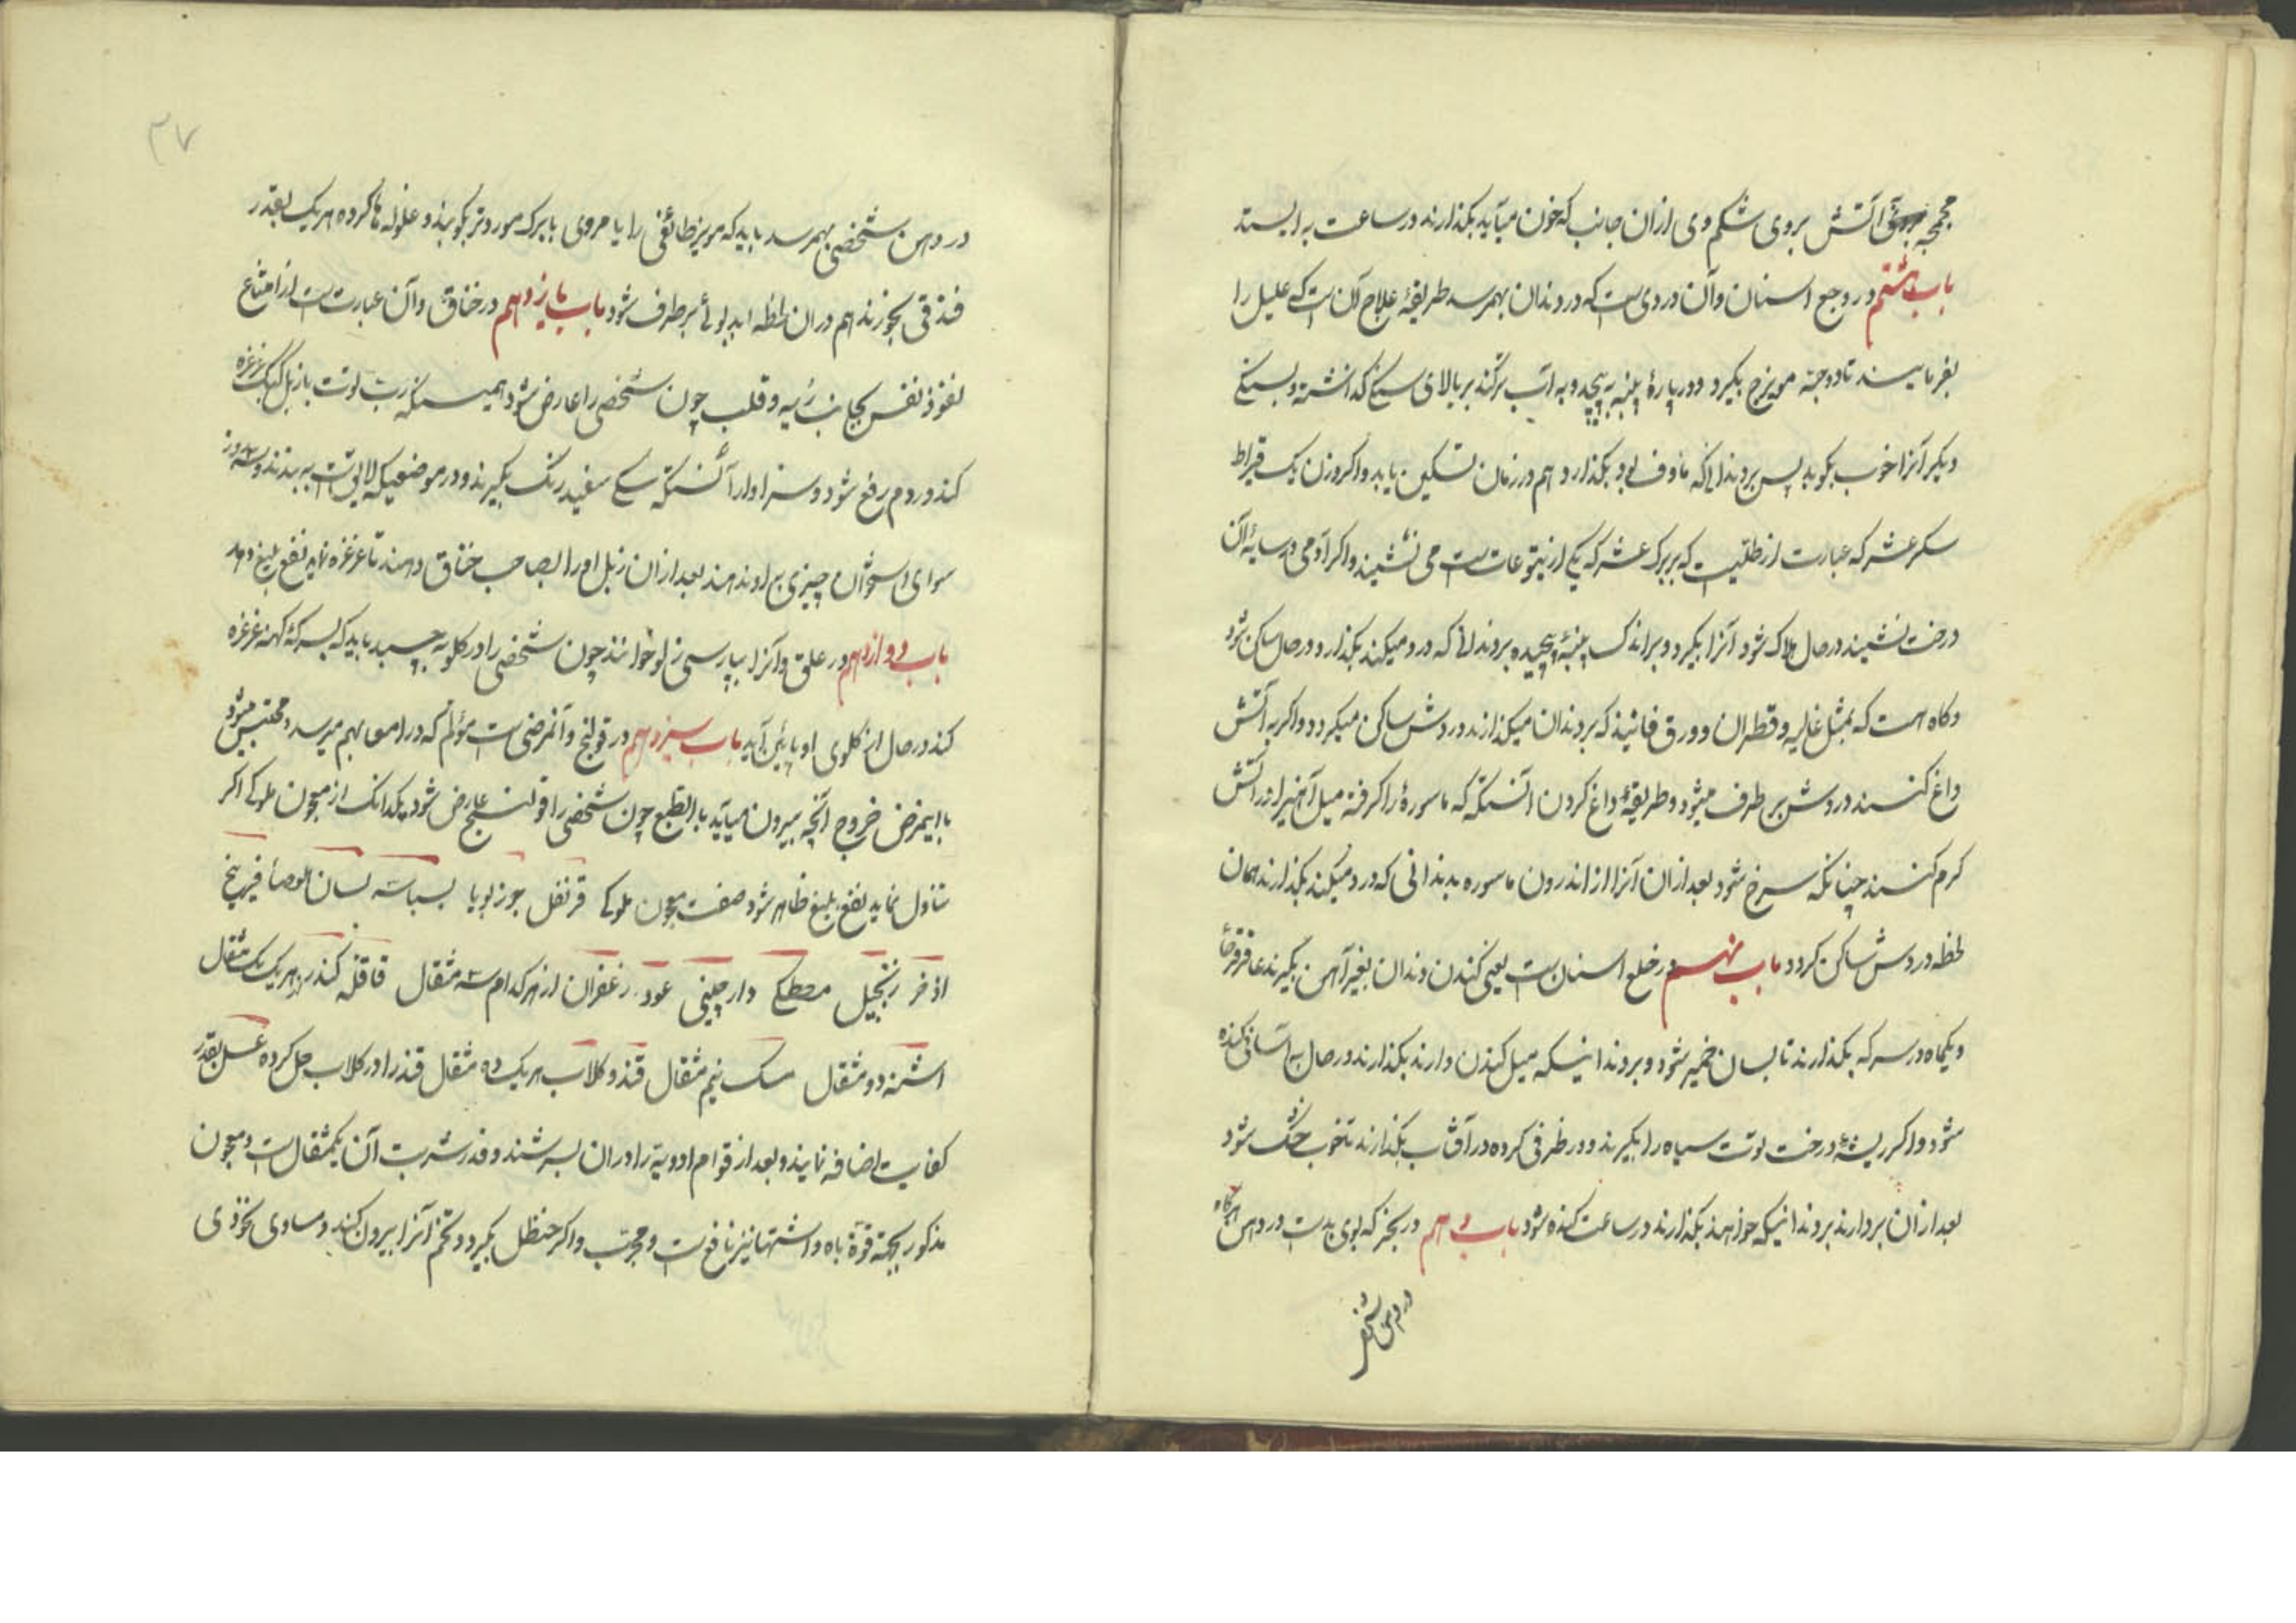 محجمه آتش بروی شکم وی ازان جانب که خون میآید بکذارند در ساعت به ایستد
باب هشتم در وجع اسنان و آن دردی ست که در دندان بهمرسد طریقهٔ علاج آن ست که علیل را
بفرمایند تا دو حبه مویزج بکیرد و در پارهٔ پنبه به پیچد و به آب ترکند بر بالای سنکی که انشته و بسنکی
دیکر آنرا خوب بکوبد پس بر دندانی که ماوف بود بکذارد هم در زمان تسکین یابد و اکر وزن یک قیراط
سکر عشر که عبارت از طلّیست که بر برک عشر که یکی از یتوعات ست می نشیند و اکر آدمی در سایهٔ آن
درخت نشیند در حال هلاک شود آنرا بکیرد و بر اندک پنبهٔ پیچیده بر دندانی که درد میکند بکذارد در حال ساکن شود
و کاه هست که بمثل غالیه و قطران و ورق فانیذ که بر دندان میکذارند دردش ساکن میکردد و اکر به آتش
داغ کنند دردش بر طرف میشود و طریقهٔ داغ کردن آنستکه که ماسورهٔ را کرفته میل آهنیرا در آتش
کرم کنند چنانکه سرخ شود بعد ازان آنرا از اندرون ماسوره بدندانی که درد میکند بکذارند همان
لحظه دردش ساکن کردد باب نهم در خلع اسنان ست یعنی کندن دندان بغیر آهن بکیرند عاقرقرحا
و یکماه در سرکه بکذارند تا بسان خمیر شود و بر دندانیکه میل کندن دارند بکذارند در حال به آسانی کنده
شود و اکر ریشهٔ درخت توت سیاه را بکیرند و در ظرفی کرده در آفتاب بکذارند تا خوب خشک شود
بعد ازان بردارند بر دندانیکه خواهند بکذارند در ساعت کنده شود باب دهم در بخر که بوی بدست در دهن هرکاه
در دهن شخصی
۳۷
در دهن شخصی بهمرسد باید که مویز طائفی را با مروی با برک مورد تر بکوبند و غلوله ها کرده هر یک بقدر
فندقی بخورند هم دران لحظه اید بوئی بر طرف شود باب یازدهم در خناق و آن عبارت ست از امتناع
نفوذ نفس بجانب ریه و قلب چون شخصی را عارض شود همیسکه رب توت با زبل کبک غرغره
کند در دم رفع شود و سزاوار آنستکه سکی سفید رنک بکیرند و در موضعیکه لایق ست به بندند و سه روز
سوای استخوان چیزی به او ندهند بعد ازان زبل او را بصاحب خناق دهند تا غرغره نماید نفع بلیغ دهد
باب دوازدهم در علق و آنرا بپارسی زلو خوانند چون شخصی را در کلو به چسبد باید که بسرکهٔ کهنه غرغره
کند در حال از کلوی او پائین آید باب سیزدهم در قولنج و آنمرضی ست مؤلم که در امعا بهم میرسد و محتبس میشود
با اینمرض خروج آنچه بیرون میآید بالطبع چون شخصی را قولنج عارض شود یکدانک از معجون ملوکی اکر
تناول نماید نفع بلیغ ظاهر شود صفت معجون ملوکی قرنفل جوزبویا بسباسه لسان العصافیر بیخ
اذخر زنجبیل مصطکی دارچینی عود زعفران از هر کدام سه مثقال قاقله کندر هر یک یک مثقال
اشنه دو مثقال مسک نیم مثقال قند و کلاب هر یک ده مثقال قند را در کلاب حل کرده عسل بقدر
کفایت اضافه نمایند و بعد از قوام ادویه را دران بسرشند و قدر شربت آن یکمثقال ست و معجون
مذکور بجهة قوة باه و اشتها نیز نافع ست و مجرّب و اکر حنظل بکیرد و تخم آنرا بیرون کند و مساوی نخودی